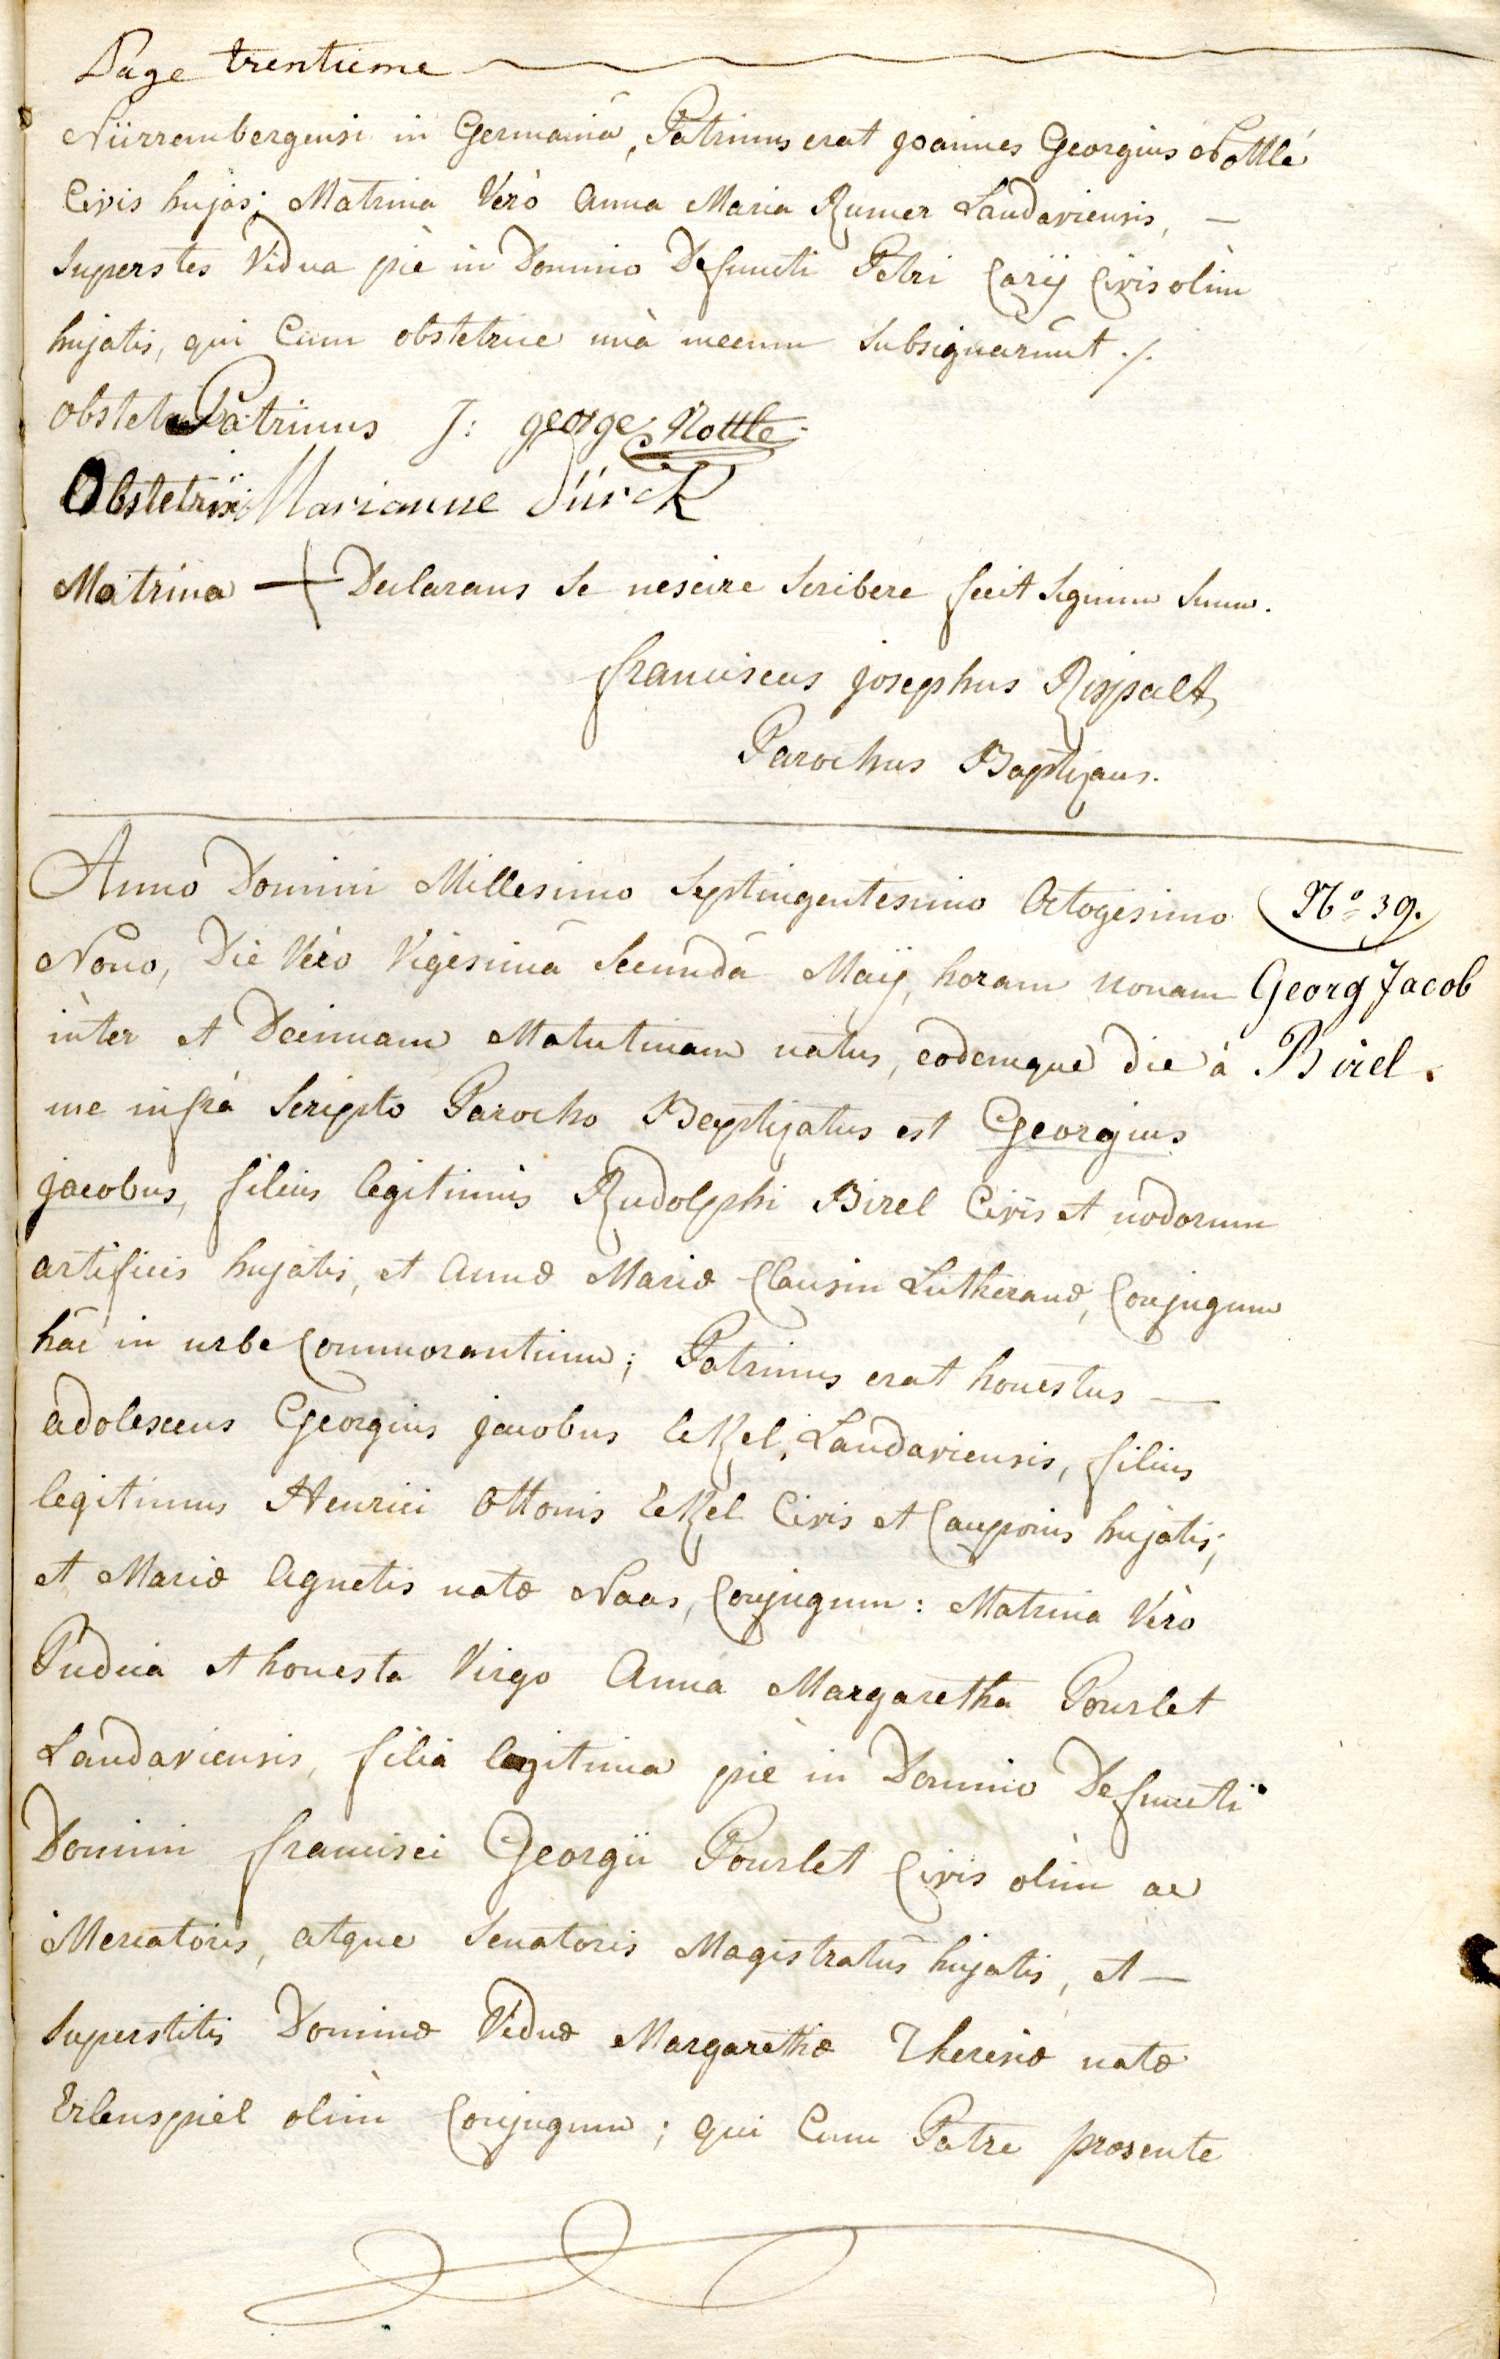 Page trentieme
Nürrembergensi in Germaniâ, Patrinus erat joannes Georgius Nottlé
Civis hujas; Matrina Verò Anna Maria Rumer Landaviensis, —
Superstes Vidua piè in Domino Defuncti Petri Carij Civis olim
hujatis, qui Cum obstetrice unà mecum Subsignarunt ./.
Patrinus J: george Nottle
Obstetrix Marianne Dürck
Matrina + Declarans Se nescire Scribere fecit Signum Suum.
franciscus josephus
Parochus Baptizans.
Anno Domini Millesimo Septingentesimo Octogesimo
Nono, Die Verò Vigesimâ Secundâ Maij, horam nonam
inter et Decimam Matutinam natus, eodemque die à
me infrà Scripto Parocho Baptizatus est Georgius
jacobus, filius legitimus Rudolphi Birel Civis et nodorum
artificis hujatis, et Annæ Mariæ Clausin Lutheranæ, Conjugum
hâc in urbe Commorantium; Patrinus erat honestus —
adolescens Georgius jacobus Ekel, Landaviensis, filius
legitimus Henrici Ottonis Ekel Civis et Cauponis hujatis,
et Mariæ Agnetis natæ Naas, Conjugum: Matrina Verò
Pudica et honesta Virgo Anna Margaretha Pourlet
Landaviensis, filia legitima piè in Domino Defuncti
Domini francisci Georgii Pourlet Civis olim ac
Mercatoris, atque Senatoris Magistratûs hujatis, et —
Superstitis Dominæ Viduæ Margarethæ Theresiæ natæ
Erlenspiel olim Conjugum; qui Cum Patre præsente
Nº 39.
Georg Jacob
Birel.